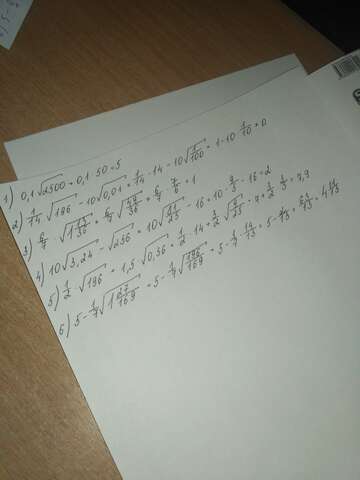 1) 0,1·√2500 = 0,1·50 = 5
2) 1/14 √196 - 10√0,01 = 1/14 · 14 - 10√1/100 = 1 - 10 · 1/10 = 0
3) 6/7 · √1 13/36 = 6/7 √49/36 = 6/7 · 7/6 = 1
4) 10√3,24 - √256 = 10√ - 16 = 10 · 9/5 - 16 = 2
5) 1/2 · √196 + 1,5 √0,36 = 1/2 · 14 + 3/2 √9/25 = 7 + 3/2 · 3/5 = 7,9
6) 5 - 1/7 √1 27/169 = 5 - 1/7 √196/169 = 5 - 1/7 · 14/13 = 5 - 2/13 = = 4 11/13